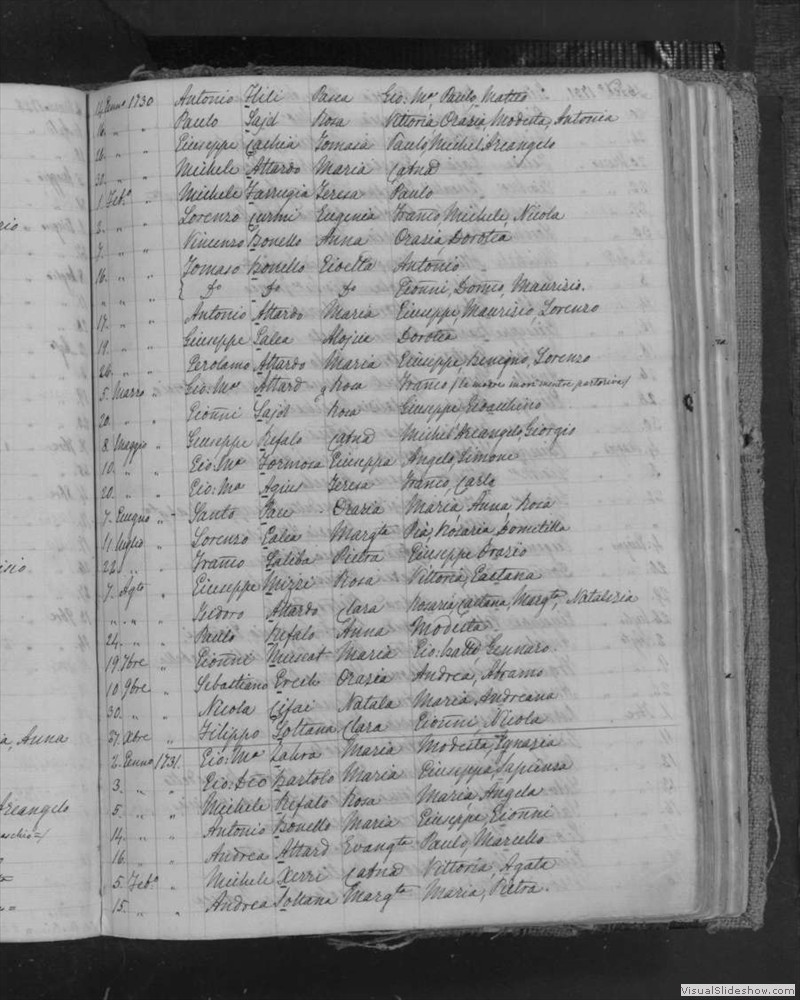 14 Genn.o 1730 Antonio Zlili Pasca Gio: M.a, Paulo, Matteo
16. " " Paulo Sajd Rosa Vittoria Orazia, Modesta, Antonia
28. " " Giuseppe Cachia Tomasa Paulo Michel'Arcangelo
30. " " Michele Attardo Maria Catn.a
1. Feb.o " Michele Farrugia Teresa Paulo
2. " " Lorenzo Curmi Eugenia Franco Michele, Nicola
7. " " Vincenzo Bonello Anna Orazia Dorotea
16. " " Tomaso Bonello Gioetta Antonio
" " " { do do do Gionni, Domco, Maurizio.
17. " " Antonio Attardo Maria Giuseppe, Maurizio, Lorenzo
19. " " Giuseppe Galea Aloisia Dorotea
26. " " Gerolamo Attardo Maria Giuseppe, Benigno, Lorenzo
5. Marzo " Gio: M.a Attard Rosa Franco
20. " " Gionni Sajd Rosa Giuseppe Gioachino
8. Maggio " Giuseppe Refalo Catn.a Michel'Arcangelo, Giorgio
10. " " Gio: M.a Formosa Giuseppa Angelo Simone
20. " " Gio: M.a Agius Teresa Franco, Carlo
7. Giugno " - Santo Pau Orazia Maria, Anna, Rosa
11. Luglio " Lorenzo Galea Margta Pia, Rosaria, Dometilla
22. " " Franco Saliba Pietra Giuseppe Orazio
7. Agto " Giuseppe Mizzi Rosa Vittoria, Gaetana
" " " Isidoro Attardo Clara Rosaria, Caetana, Margta, Natalizia
24. " " Paulo Refalo Anna Modesta
19. 7bre " Gionni Muscat Maria Gio: Batta, Gennaro
10. 9bre " Sebastiano Grech Orazia Andrea, Abramo
30. " " Nicola Cifai Natala Maria, Andreana
27. Xbre " Filippo Soltana Clara Gionni, Nicola
2. Genno 1731. Gio: M.a Zahra Maria Modesta, Ignazia
3. " " Gio: Deo Bartolo Maria Giuseppa, Sapienza
5. " " Michele Refalo Rosa Maria, Angela
14. " " Antonio Bonello Maria Giuseppe, Gionni
16. " " Andrea Attard Evangta Paulo, Marcello
5. Feb.o " Michele Xerri Catn.a Vittoria, Agata
15. " " Andrea Soltana Margta Maria, Pietra.
Anna
VisualSlideshow.com